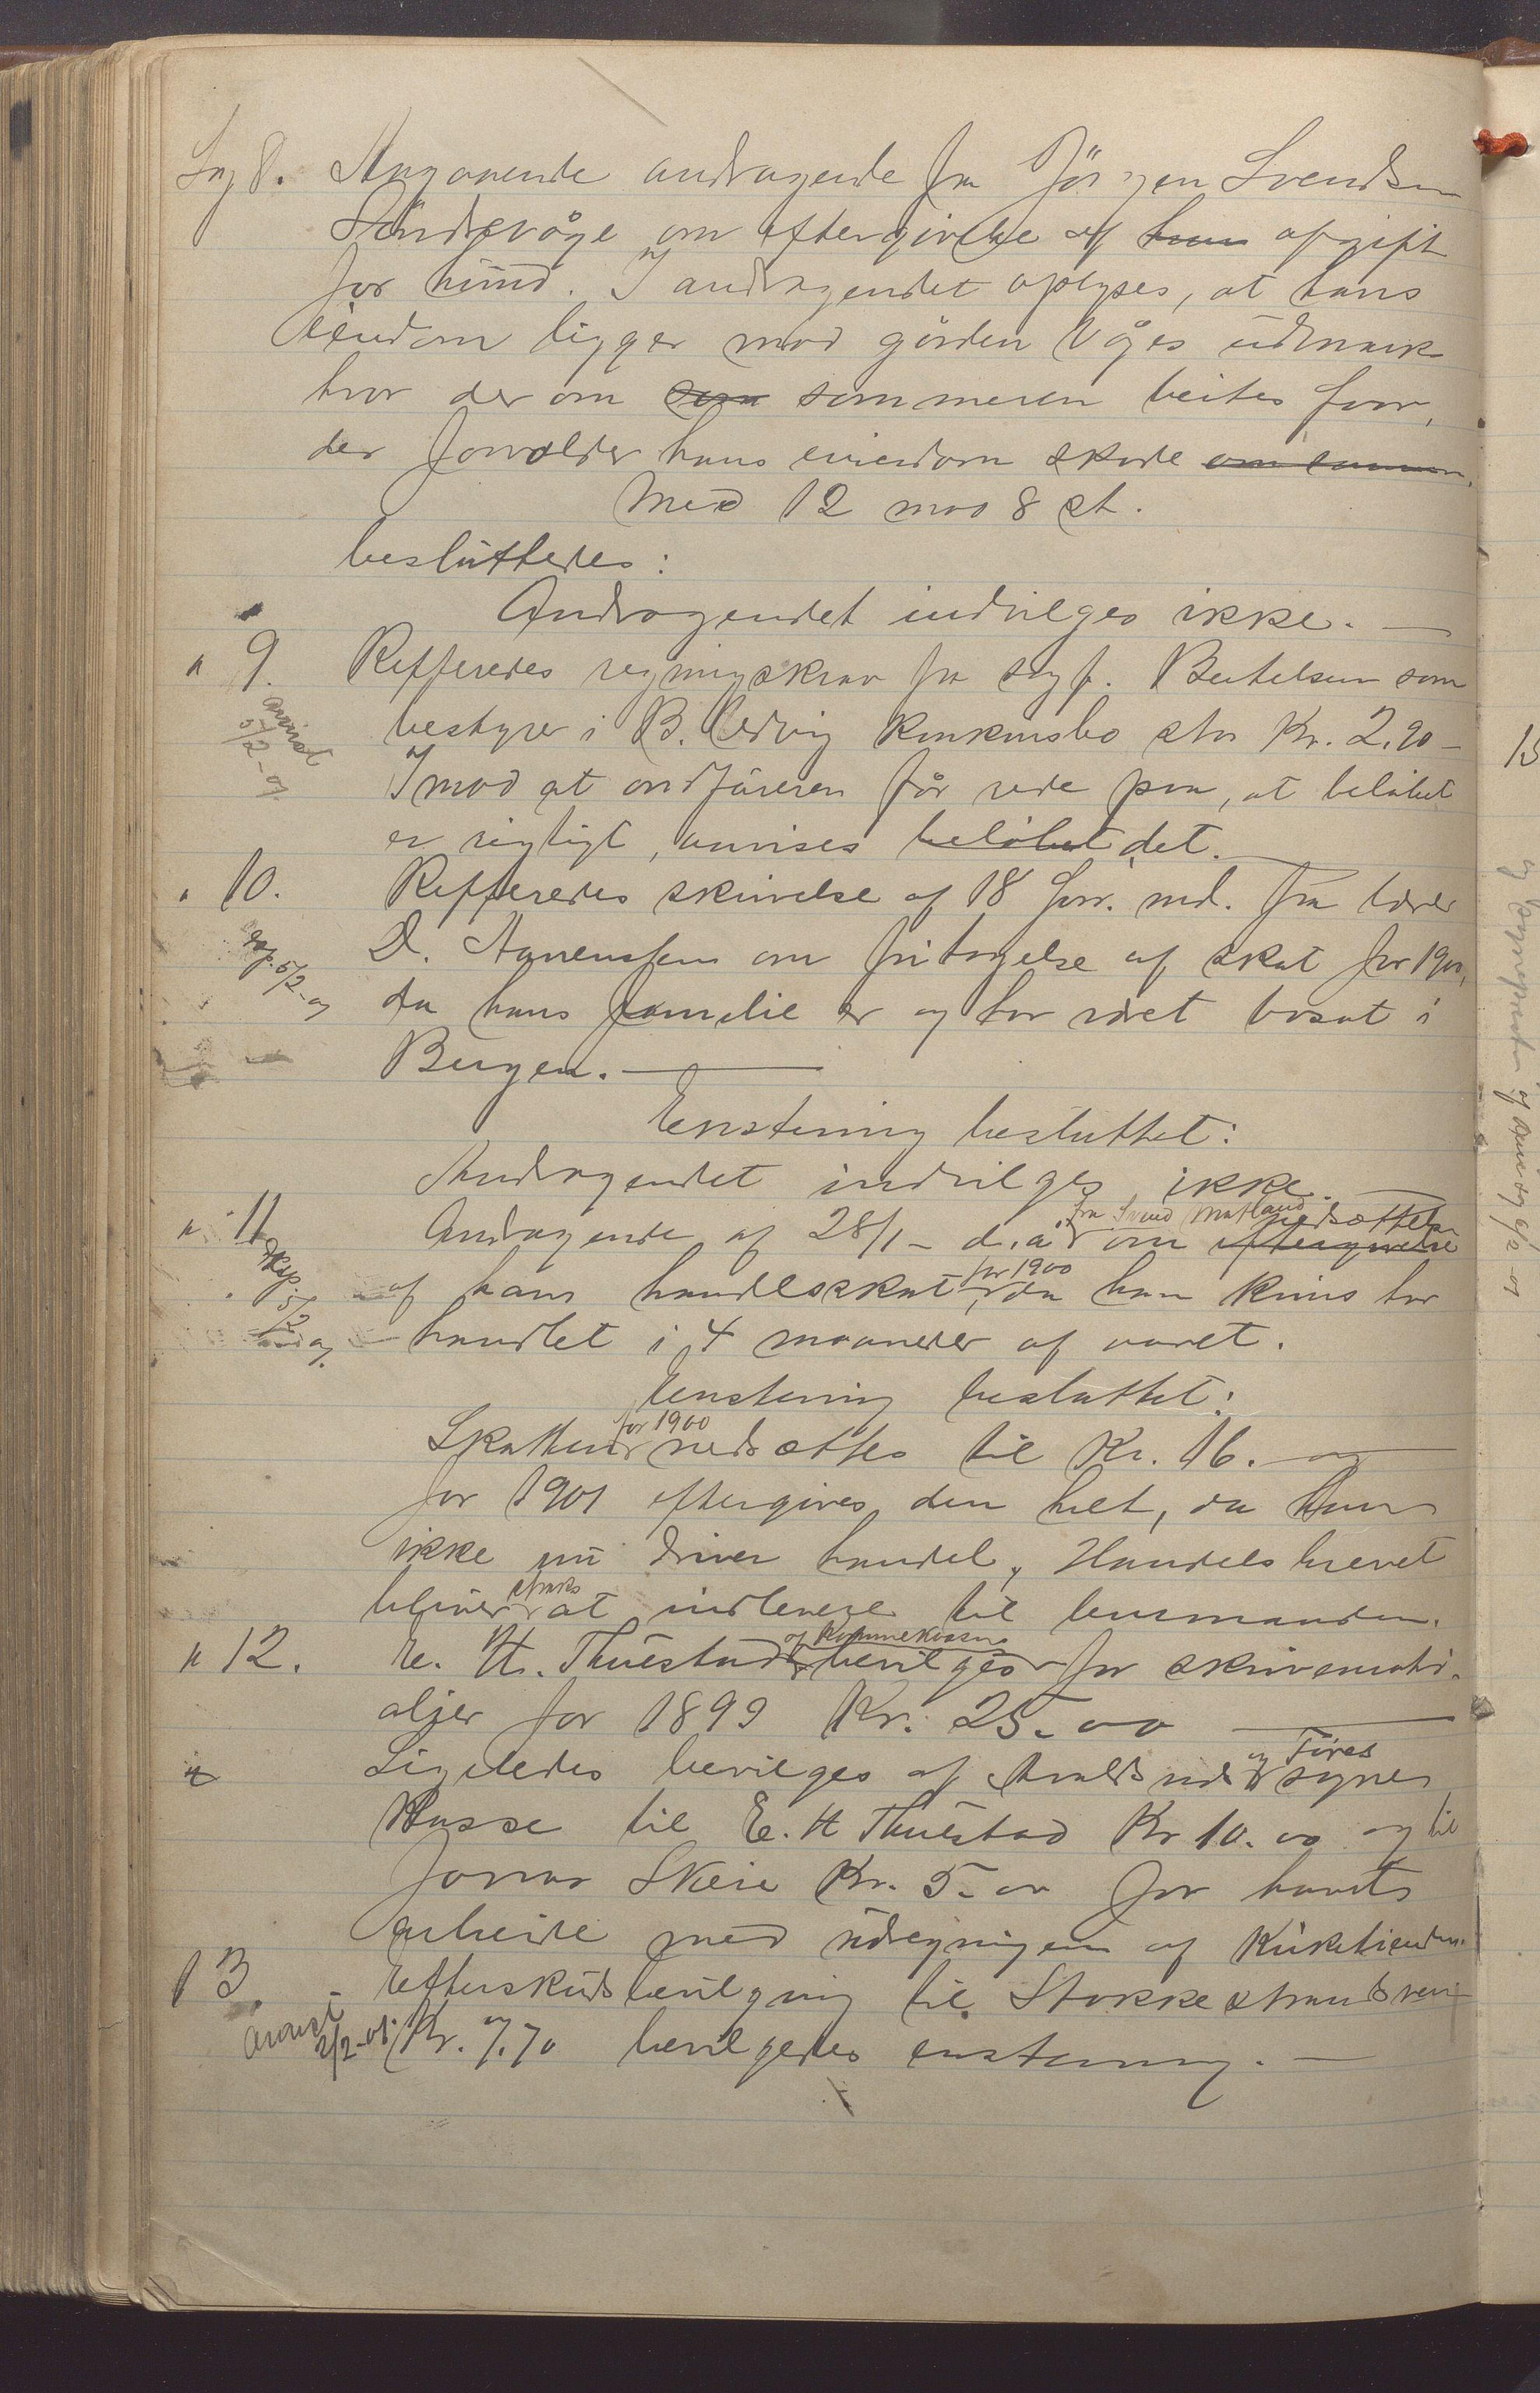 Sag 8. Angaaende andragende fra Jörgen Svendsen
Söndrevåge om eftergivelse af hans afgift
for hund. I andragendet oplyses, at hans
eiendom ligger mod gården Våges udmark
hvor der om som sommeren beites faar,
der forvolder hans eiendom skade om sommeren.
Med 12 mod 8 st.
besluttedes:
Andragendet indvilges ikke. —
" 9. Reffereredes regningskrav fra sagf. Bertelsen som
bestyrer i B. Konkursbo stor Kr. 2.90 -
anvist 5/2-01
Imod at ordföreren får rede paa, at belöbet
er rigtigt, anvises belöbet det.
" 10. Reffereredes skrivelse af 18 forr. md. fra lærer
D. om fritagelse af skat for 1900,
exp. 5/2-01
da hans familie er og har været bosat i
Bergen. —
Enstemig besluttet:
Andragendet indvilges ikke. —
" 11. Andragende af 28/1 - d.å. fra Svend Matland om eftergivelse nedsættelse
Exp. 5/2 01.
af hans handelsskat for 1900, da han kuns har
handlet i 4 maaneder af aaret.
Enstemig besluttet:
Skatten for 1900 nedsættes til Kr. 16. - og
for 1901 eftergives den helt, da han
ikke nu driver handel, Handelsbrevet
bliver straks at indlevere til lensmanden.
" 12. E. H. Thuestad bevilges af Kommunekassen for skrivemateri-
aljer for 1899 Kr. 25.00 —
Ligeledes bevilges af
Kasse til E. H Thuestad Kr 10.00 og til
Jonas Skeie Kr. 5.00 for havt
arbeide med udregningen af Kirketienden.
13. Efterskudsbevilgning til Stokkestrandsvei
Anvist 2/2-01. Kr. 7.70 bevilgedes enstemmig. —